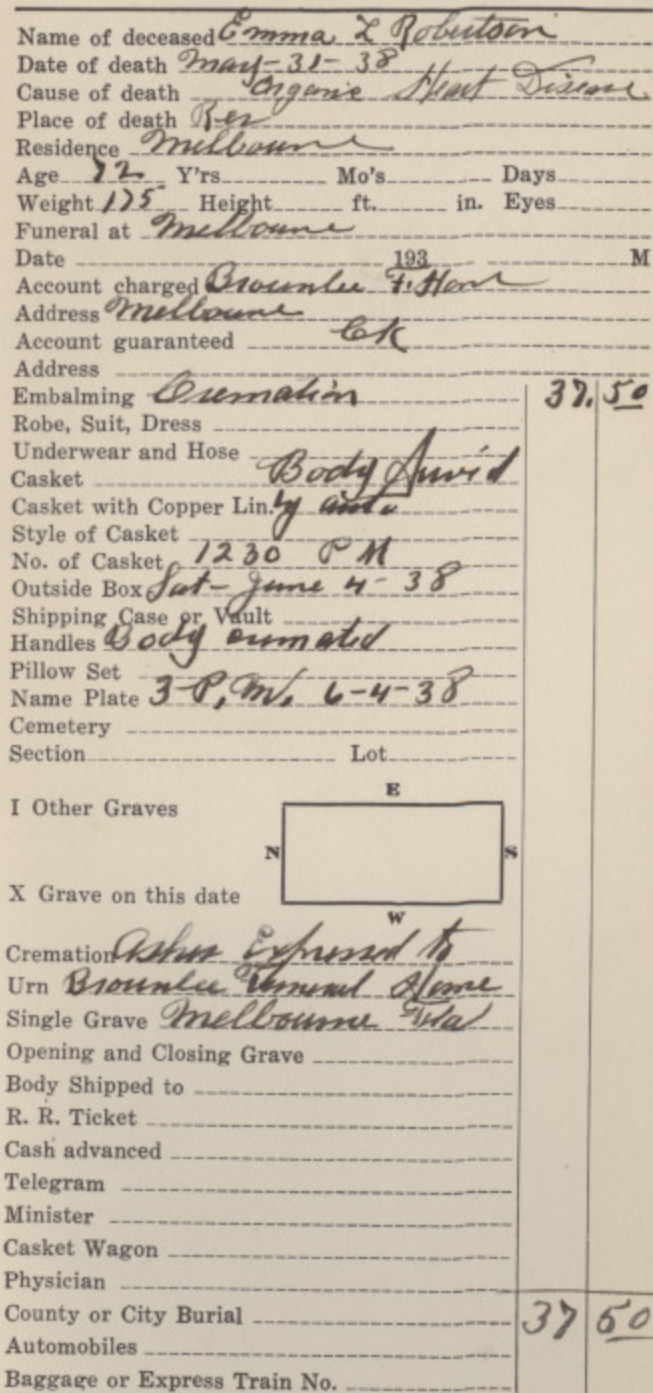 Name of deceased Emma L Robertson
Date of death May-31-38
Cause of death Organic Heart Disease
Place of death Res
Residence Melbourne
Age 72 Y'rs Mo's Days
Weight 175 Height ft. in. Eyes
Funeral at Melbourne
Date 193 M
Account charged Brownlee F. Home
Address Melbourne
Account guaranteed
Address
Embalming Cremation 37.50
Robe, Suit, Dress
Underwear and Hose
Casket Body
Casket with Copper Lin. by auto
Style of Casket
No. of Casket 1230 PM
Outside Box Sat-June 4-38
Shipping Case or Vault
Handles Body cremated
Pillow Set
Name Plate 3-P.M. 6-4-38
Cemetery
Section Lot
E
I Other Graves
N S
X Grave on this date
W
Cremation Ashes Expressed to
Urn Brownlee Funeral Home
Single Grave Melbourne Fla
Opening and Closing Grave
Body Shipped to
R. R. Ticket
Cash advanced
Telegram
Minister
Casket Wagon
Physician
County or City Burial 37 50
Automobiles
Baggage or Express Train No.